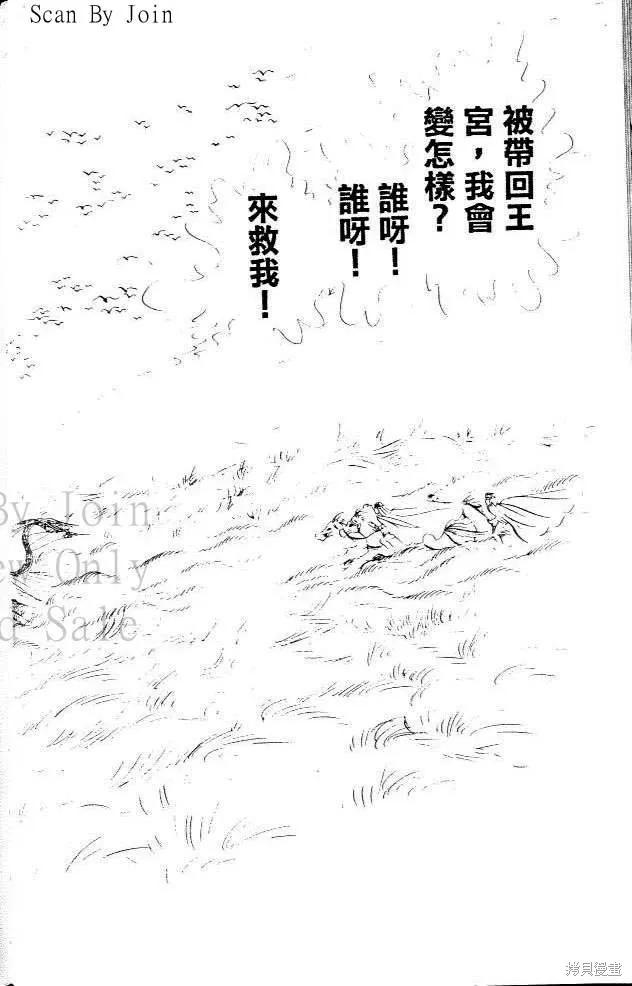 Scan By Join
被帶回王
宮，我會
變怎樣？
誰呀！
誰呀！
來救我！
By Join
Only
Sale
拷貝漫畫